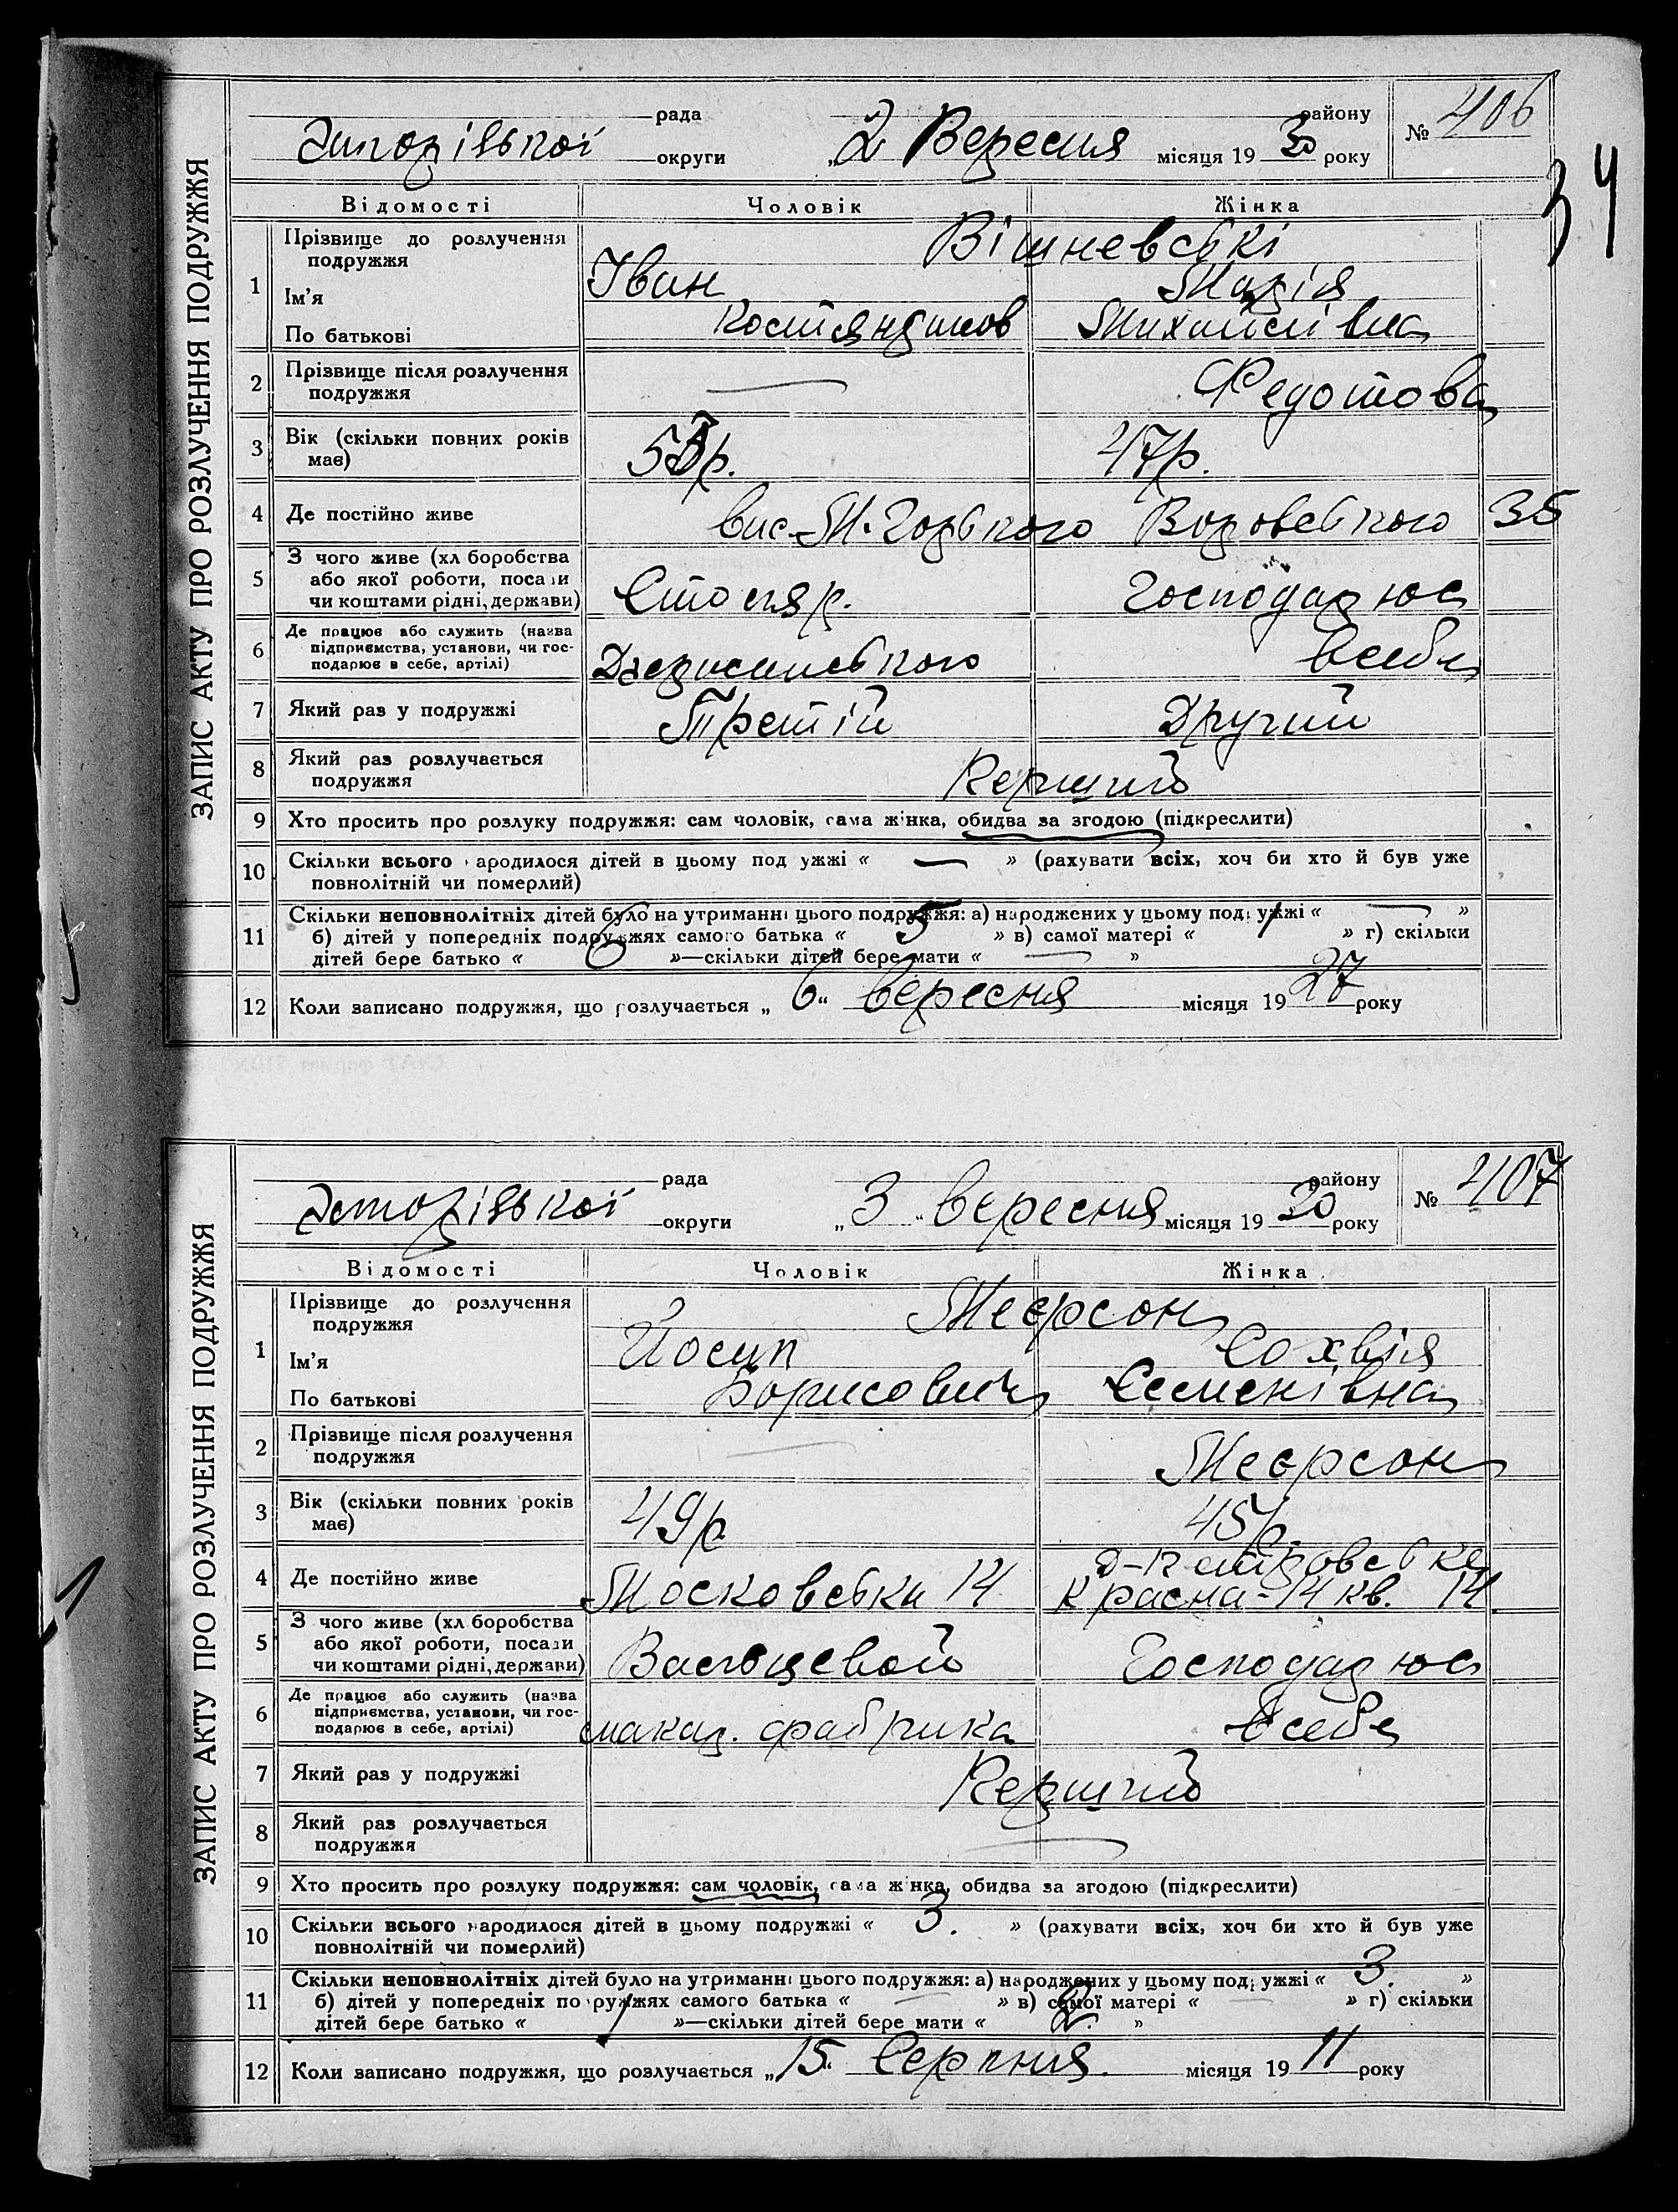 ЗАПИС АКТУ ПРО РОЗЛУЧЕННЯ ПОДРУЖЖЯ
рада району № 406
округи „2 Вересня місяця 19 30 року
34
Відомості Чоловік Жінка
1 Прізвище до розлучення подружжя Вішневські
Ім'я Іван Марія
По батькові Михайлівна
2 Прізвище після розлучення подружжя — Федотова
3 Вік (скільки повних років має) 47р.
4 Де постійно живе вис. М. Горького Воровського 35
5 З чого живе (хл боробства
або якої роботи, посади
чи коштами рідні, держави) Столяр. Господарює
6 Де працює або служить (назва
підприємства, установи, чи гос-
подарює в себе, артілі) всебе
7 Який раз у подружжі Третій Другий
8 Який раз розлучається
подружжя Перший
9 Хто просить про розлуку подружжя: сам чоловік, сама жінка, обидва за згодою (підкреслити)
10 Скільки всього народилося дітей в цьому под ужжі « — » (рахувати всіх, хоч би хто й був уже
повнолітній чи померлий)
11 Скільки неповнолітніх дітей було на утриманні цього подружжя: а) народжених у цьому под ужжі « — »
б) дітей у попередніх подружжях самого батька « 5 » в) самої матері « 1 » г) скільки
дітей бере батько « 6 »—скільки дітей бере мати « — »
12 Коли записано подружжя, що розлучається „ 6 “ вересня місяця 19 27 року
ЗАПИС АКТУ ПРО РОЗЛУЧЕННЯ ПОДРУЖЖЯ
рада району № 407
округи „ 3 “ вересня місяця 19 30 року
Відомості Чоловік Жінка
1 Прізвище до розлучення
подружжя Меєрсон
Ім'я Йосип Сохвія
По батькові Борисович Семенівна
2 Прізвище після розлучення
подружжя — Меєрсон
3 Вік (скільки повних років
має) 49р 45р.
4 Де постійно живе Московська 14 Красна-14 кв. 14
5 З чого живе (хл боробства
або якої роботи, посади
чи коштами рідні, держави) Вальцевой Господарює
6 Де працює або служить (назва
підприємства, установи, чи гос-
подарює в себе, артілі) макар. фабрика Всебе
7 Який раз у подружжі Перший
8 Який раз розлучається
подружжя —
9 Хто просить про розлуку подружжя: сам чоловік, сама жінка, обидва за згодою (підкреслити)
10 Скільки всього народилося дітей в цьому подружжі « 3. » (рахувати всіх, хоч би хто й був уже
повнолітній чи померлий)
11 Скільки неповнолітніх дітей було на утриманні цього подружжя: а) народжених у цьому под ужжі « 3. »
б) дітей у попередніх по ружжях самого батька « — » в) самої матері « — » г) скільки
дітей бере батько « 1 »—скільки дітей бере мати « 2. »
12 Коли записано подружжя, що розлучається „ 15 “ Серпня. місяця 19 11 року